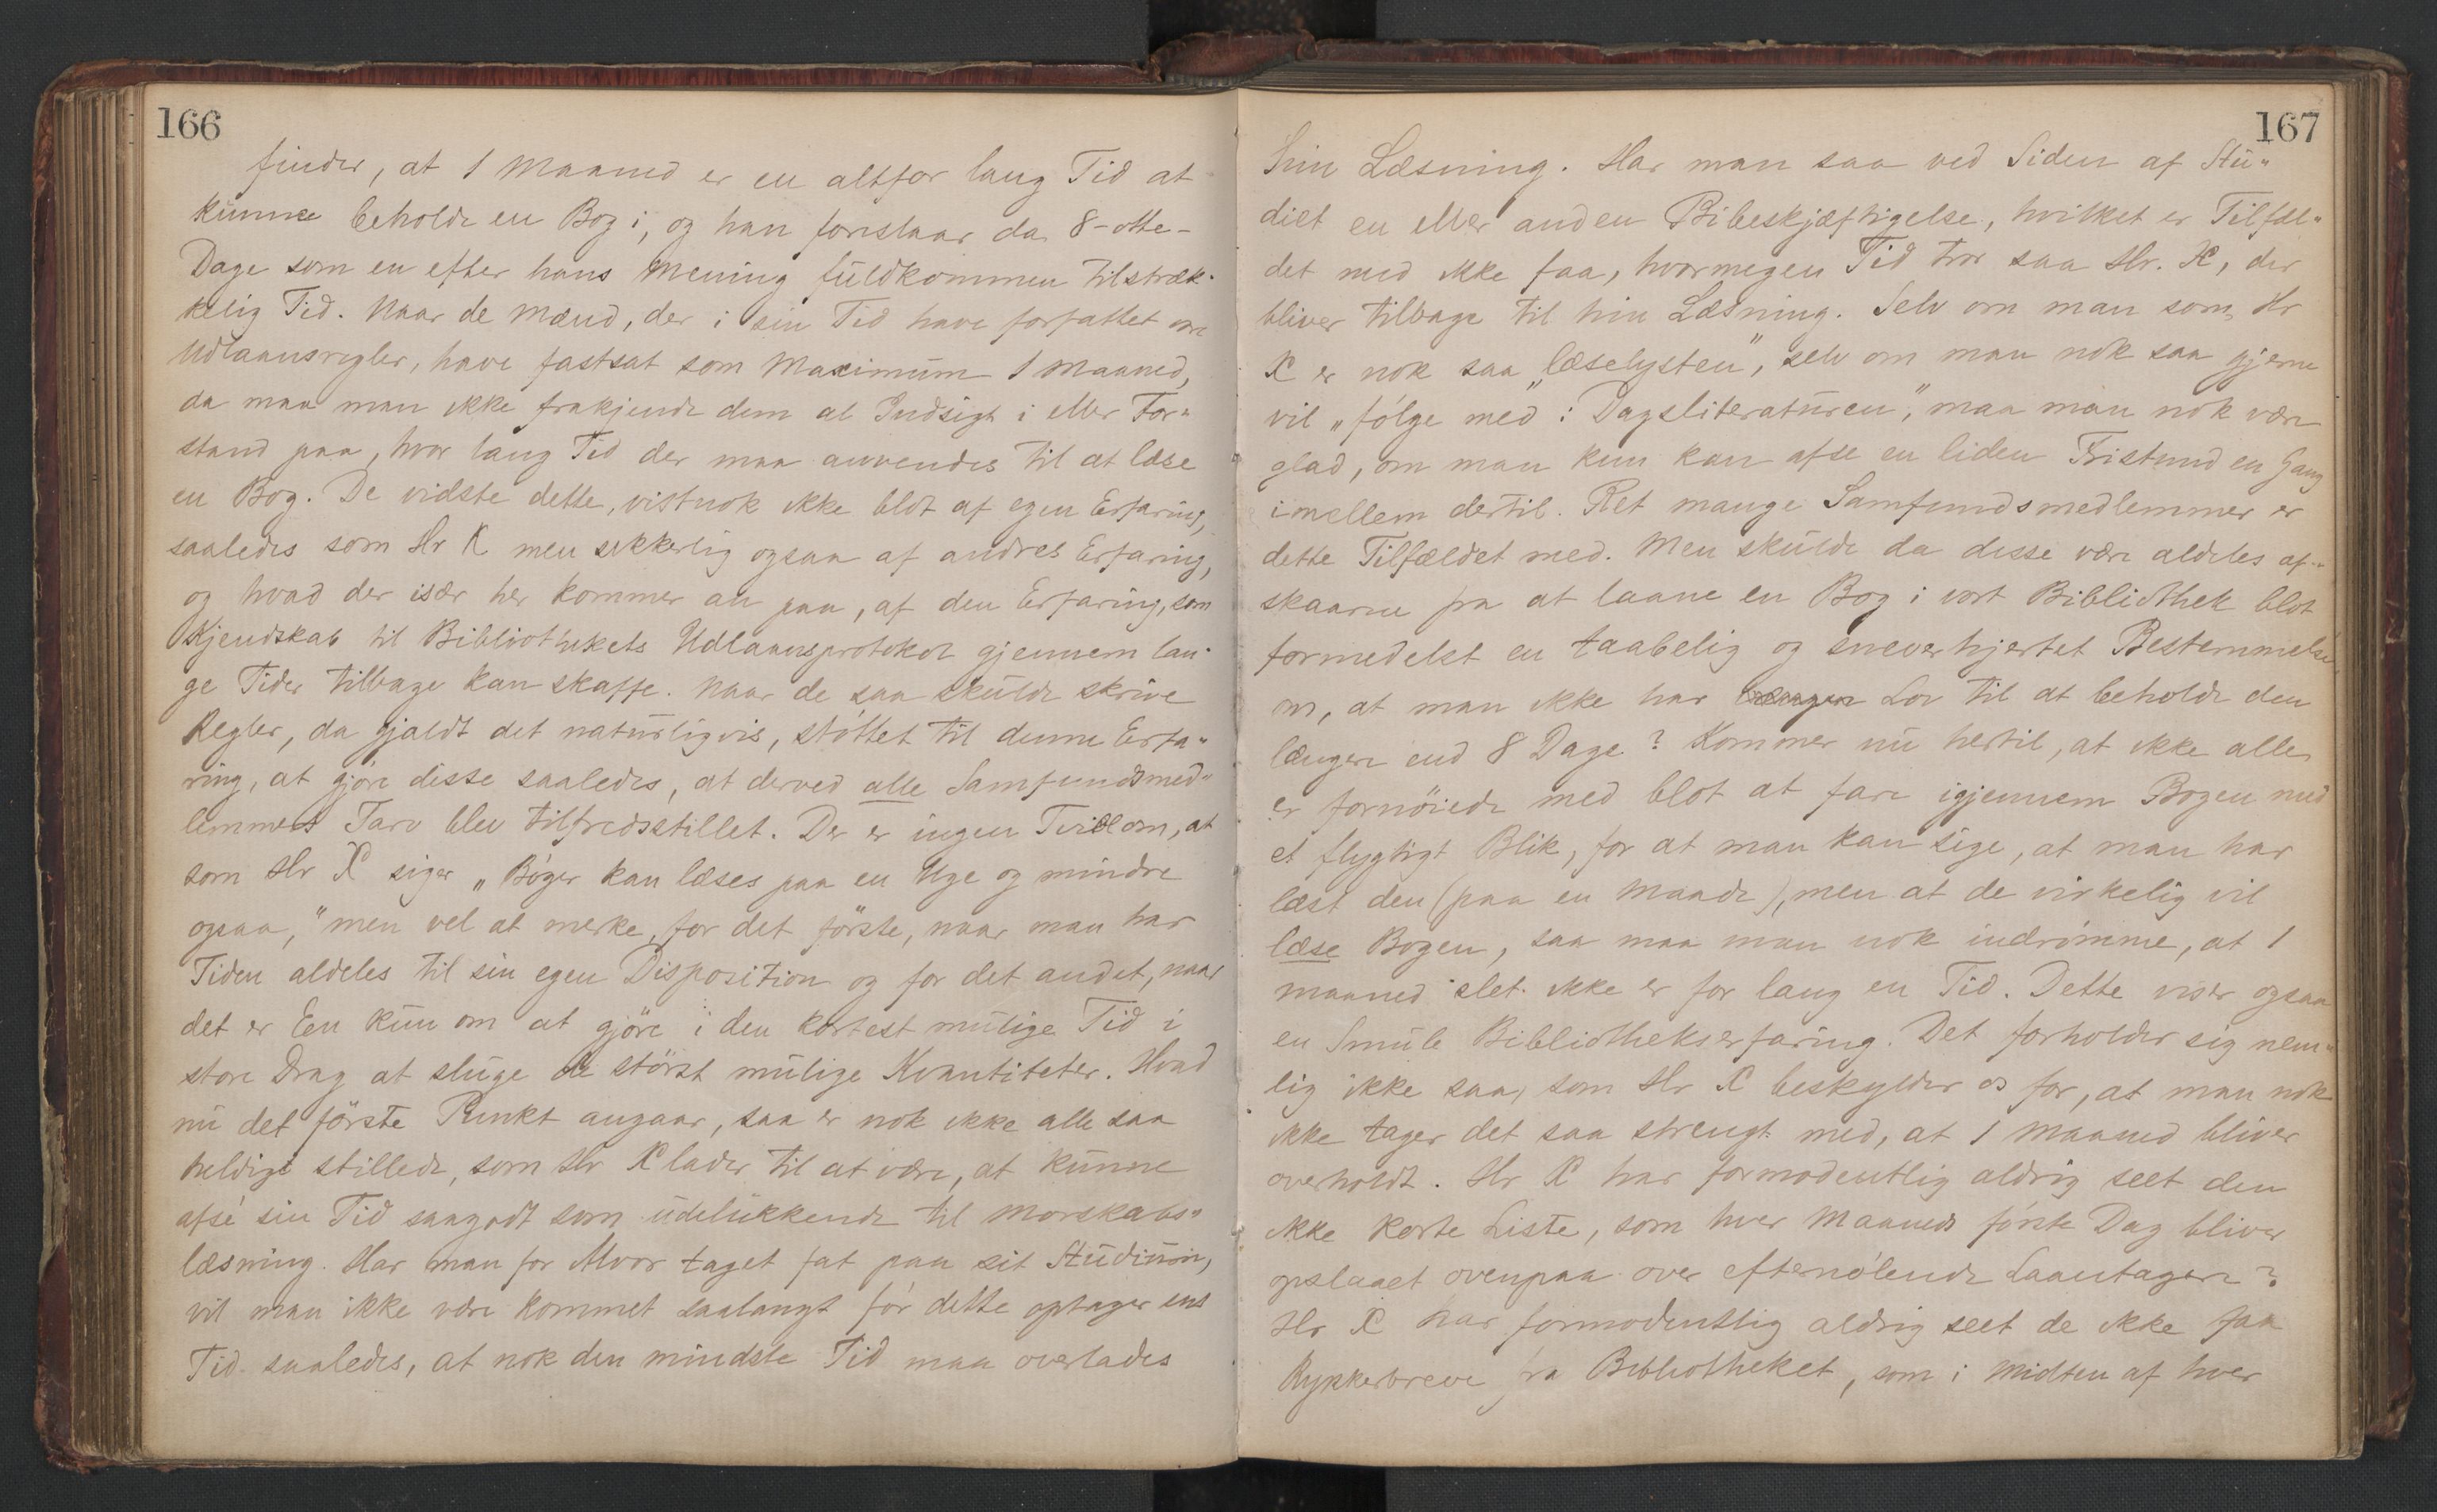 166
finder, at 1 Maaned er en altfor lang Tid at
kunne beholde en Bog i, og han foreslaar da 8-otte-
Dage som en efter hans Mening fuldkommen tilstræk-
kelig Tid. Naar de Mænd, der i sin Tid have forfattet vore
Udlaansregler, have fastsat som Maximum 1 Maaned,
da maa man ikke frakjende dem al Indsigt i eller For-
stand paa, hvor lang Tid der maa anvendes til at læse
en Bog. De vidste dette, vistnok ikke blot af egen Erfaring,
saaledes som Hr X men sikkerlig ogsaa af andres Erfaring,
og hvad der især her kommer an paa, af den Erfaring, som
Kjendskab til Bibliothekets Udlaansprotokol gjennem lan-
ge Tider tilbage kan skaffe. Naar de saa skulde skrive
Regler, da gjaldt det naturligvis, støttet til denne Erfa-
ring, at gjøre disse saaledes, at derved alle Samfundsmed-
lemmers Tarv blev tilfredsstillet. Der er ingen Tvivl om, at
som Hr X siger „Bøger kan læses paa en Uge og mindre
ogsaa,” men vel at merke, for det første, naar man har
Tiden aldeles til sin egen Disposition og for det andet, naar
det er Een kun om at gjøre i den kortest mulige Tid i
store Drag at sluge de størst mulige Kvantiteter. Hvad
nu det første Punkt angaar, saa er nok ikke alle saa
heldigt stillede, som Hr X lader til at være, at kunne
afsé sin Tid saagodt som udelukkende til Morskabs-
læsning. Har man for Alvor taget fat paa sit Studium,
vil man ikke være kommet saalangt før dette optager ens
Tid saaledes, at nok den mindste Tid maa overlades
167
hin Læsning. Har man saa ved Siden af Stu-
diet en eller anden Bibeskjæftigelse, hvilket er Tilfæl-
det med ikke faa, hvormegen Tid tror saa Hr. X, der
bliver tilbage til hin Læsning. Selv om man som Hr
X er nok saa „læselysten”, selv om man nok saa gjerne
vil „følge med i Dagsliteraturen”, maa man nok være
glad, om man kun kan afse en liden Fristund en Gang
imellem dertil. Ret mange Samfundsmedlemmer er
dette Tilfældet med. Men skulde da disse være aldeles af-
skaarne fra at laane en Bog i vort Bibliothek blot
formedelst en taabelig og sneverhjertet Bestemmelse
om, at man ikke har Lov til at beholde den
længere end 8 Dage? Kommer nu hertil, at ikke alle
er fornøiede med blot at fare igjennem Bogen med
et flygtigt Blik, for at man kan sige, at man har
læst den (paa en Maade), men at de virkelig vil
læse Bogen, saa maa man nok indrømme, at 1
Maaned slet ikke er for lang en Tid. Dette viser ogsaa
en Smule Bibliothekserfaring. Det forholder sig nem-
lig ikke saa, som Hr X beskylder os for, at man nok
ikke tager det saa strengt med, at 1 Maaned bliver
overholdt. Hr X har formodentlig aldrig seet den
ikke korte Liste, som hver Maaneds første Dag bliver
opslaaet ovenpaa over efternølende Laantagere?
Hr X har formodentlig aldrig seet de ikke faa
Rykkerbreve fra Bibliotheket, som i Midten af hver